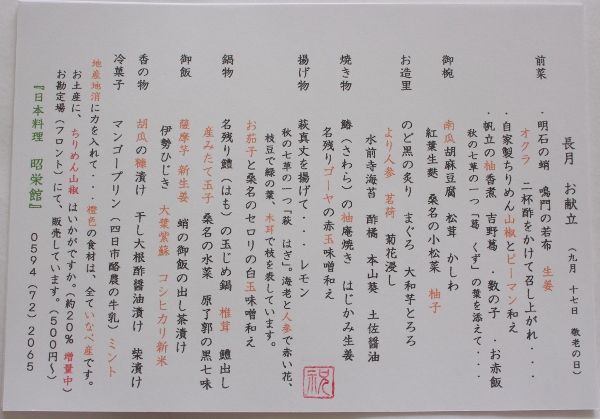 長月　お献立　（九月　十七日　敬老の日）
前菜　・明石の蛸　鳴門の若布　生姜
オクラ　二杯酢をかけて召し上がれ・・・
・自家製ちりめん山椒とピーマン和え
・帆立の柚香煮　吉野葛　・数の子　・お赤飯
秋の七草の一つ「葛　くず」の葉を添えて・・・
御椀　南瓜胡麻豆腐　松茸　かしわ
紅葉生麩　桑名の小松菜　柚子
お造里　のど黒の炙り　まぐろ　大和芋とろろ
より人参　茗荷　菊花浸し
水前寺海苔　酢橘　本山葵　土佐醤油
焼き物　鰆（さわら）の柚庵焼き　はじかみ生姜
名残りゴーヤの赤玉味噌和え
揚げ物　萩真丈を揚げて・・・・レモン
秋の七草の一つ「萩　はぎ」。海老と人参で赤い花、
枝豆で緑の葉、木耳で枝を表しています。
お茄子と桑名のセロリの白玉味噌和え
鍋物　名残り鱧（はも）の玉じめ鍋　椎茸　鱧出し
産みたて玉子　桑名の水菜　原了郭の黒七味
御飯　薩摩芋　新生姜　蛸の御飯の出し茶漬け
伊勢ひじき　大葉紫蘇　コシヒカリ新米
香の物　胡瓜の糠漬け　干し大根酢醤油漬け　柴漬け
冷菓子　マンゴープリン（四日市酪農の牛乳）ミント
地産地消に力を入れて・・・橙色の食材は、全ていなべ産です。
お土産に、ちりめん山椒　はいかがですか。（約20％　増量中）
お勘定場（フロント）にて、販売しています。（500円～）
『日本料理　昭栄館』　0594（72）2065
祝